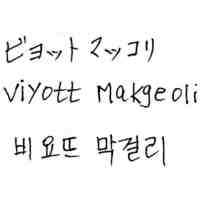 ビヨット マッコリ
Viyott Makgeoli
비요뜨 막걸리